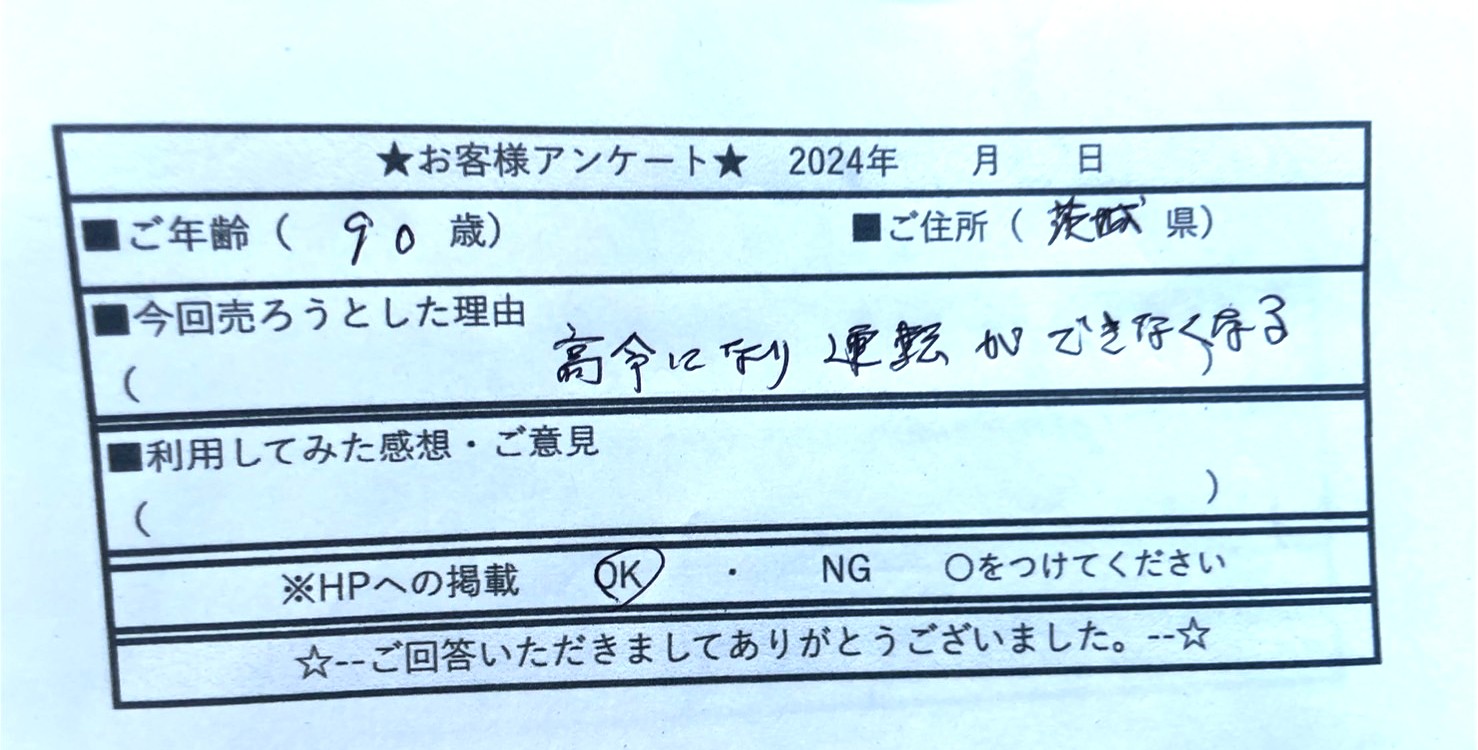 ★お客様アンケート★ 2024年 月 日
■ご年齢( 90 歳) ■ご住所( 茨城 県)
■今回売ろうとした理由
( 高令になり 運転が できなくなる )
■利用してみた感想・ご意見
( )
※HPへの掲載 OK ・ NG ○をつけてください
☆--ご回答いただきましてありがとうございました。--☆